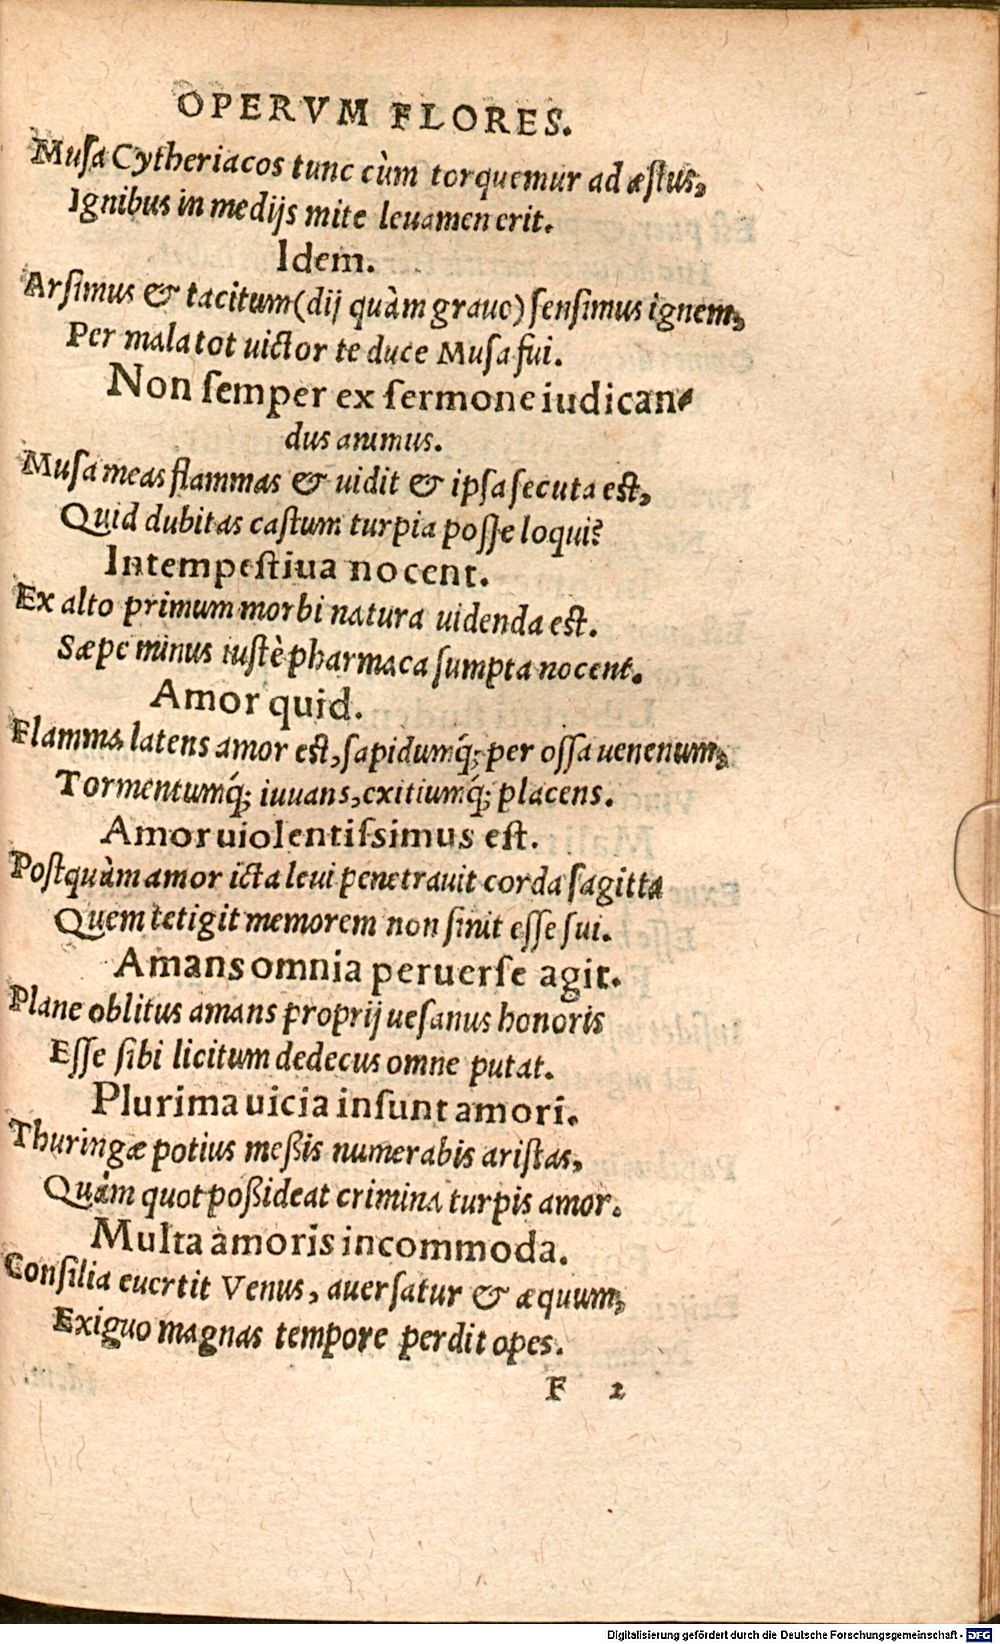 OPERVM FLORES.
Musa Cytheriacos tunc cùm torquemur ad æstus,
Ignibus in medijs mite leuamen erit.
Idem.
Arsimus & tacitum (dij quàm graue) sensimus ignem,
Per mala tot uictor te duce Musa fui.
Non semper ex sermone iudican-
dus animus.
Musa meas flammas & uidit & ipsa secuta est,
Quid dubitas castum turpia posse loqui?
Intempestiua nocent.
Ex alto primum morbi natura uidenda est.
Sæpe minus iustè pharmaca sumpta nocent.
Amor quid.
Flamma latens amor est, sapidumq́; per ossa uenenum,
Tormentumq́; iuuans, exitiumq́; placens.
Amor uiolentissimus est.
Postquàm amor icta leui penetrauit corda sagitta
Quem tetigit memorem non sinit esse sui.
Amans omnia peruerse agit.
Plane oblitus amans proprij uesanus honoris
Esse sibi licitum dedecus omne putat.
Plurima uicia insunt amori.
Thuringæ potius meßis numerabis aristas,
Quàm quot poßideat crimina turpis amor.
Multa amoris incommoda.
Consilia euertit Venus, auersatur & æquum,
Exiguo magnas tempore perdit opes.
F 2
Digitalisierung gefördert durch die Deutsche Forschungsgemeinschaft - DFG